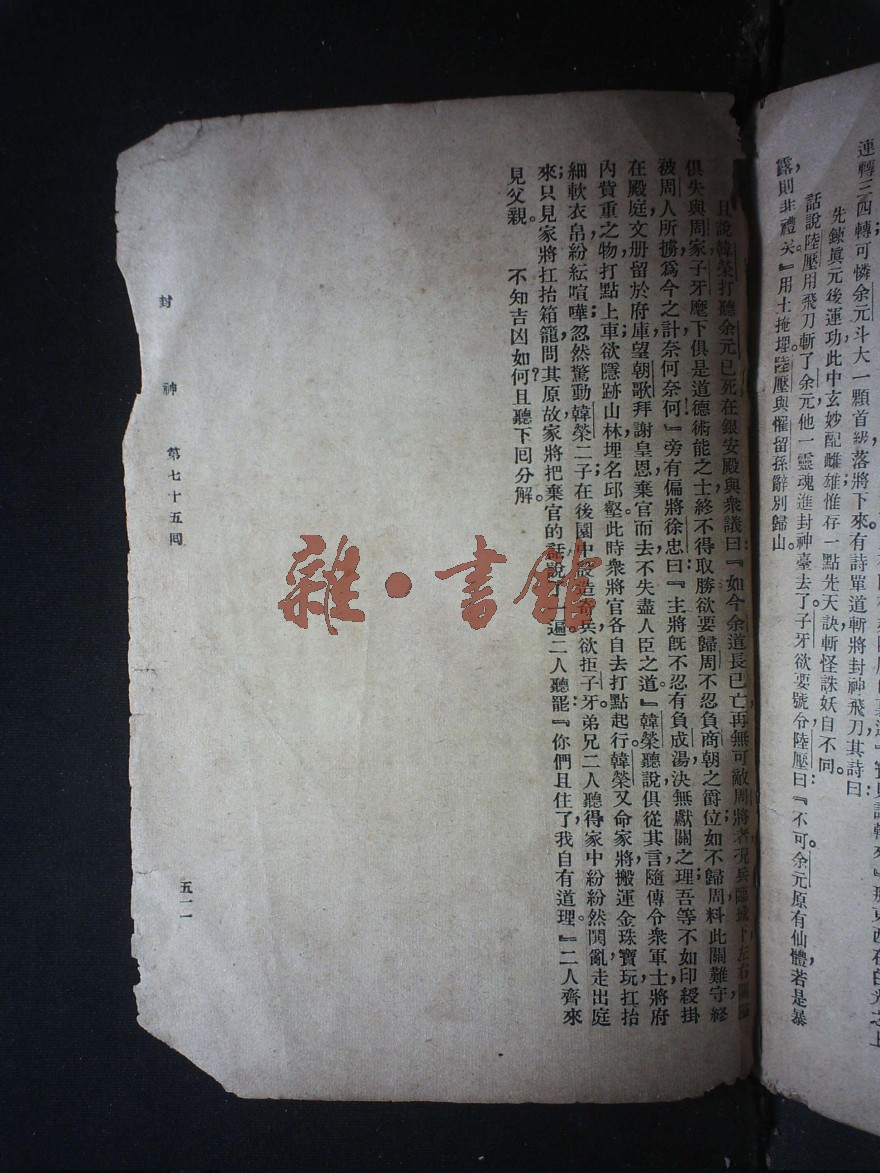 連轉三四轉可憐余元斗大一顆首級落將下來有詩單道斬將封神飛刀其詩曰
先鍊眞元後運功此中玄妙配雌雄惟存一點先天訣斬怪誅妖自不同。
話說陸壓用飛刀斬了余元他一靈魂進封神臺去了。子牙欲要號令陸壓曰：『不可。余元原有仙體，若是暴
露，則非禮矣。』用土掩埋。陸壓與懼留孫辭別歸山。
且說韓榮打聽余元已死，在銀安殿與衆議曰：『如今余道長已亡，再無可敵周將者，況兵臨城下，左右關隘
俱失與周家，子牙麾下俱是道德術能之士，終不得取勝；欲要歸周，不忍負商朝之爵位；如不歸周，料此關難守，終
被周人所擄，爲今之計，奈何奈何！』旁有偏將徐忠曰：『主將旣不忍有負成湯，決無獻關之理，吾等不如印綬掛
在殿庭，文册留於府庫，望朝歌拜謝皇恩，棄官而去，不失盡人臣之道。』韓榮聽說，俱從其言，隨傳令衆軍士將府
內貲重之物，打點上車，欲隱跡山林，埋名邱壑。此時衆將官各自去打點起行。韓榮又命家將搬運金珠寶玩，扛抬
細軟衣帛，紛紜喧嘩；忽然驚動韓榮二子，在後園中設造奇兵，欲拒子牙。弟兄二人聽得家中紛紛然鬨亂，走出庭
來；只見家將扛抬箱籠，問其原故？家將把棄官的話說了一遍。二人聽罷：『你們且住了，我自有道理。』二人齊來
見父親。　不知吉凶如何，且聽下回分解。
封神　第七十五回
五二一
雜·書館